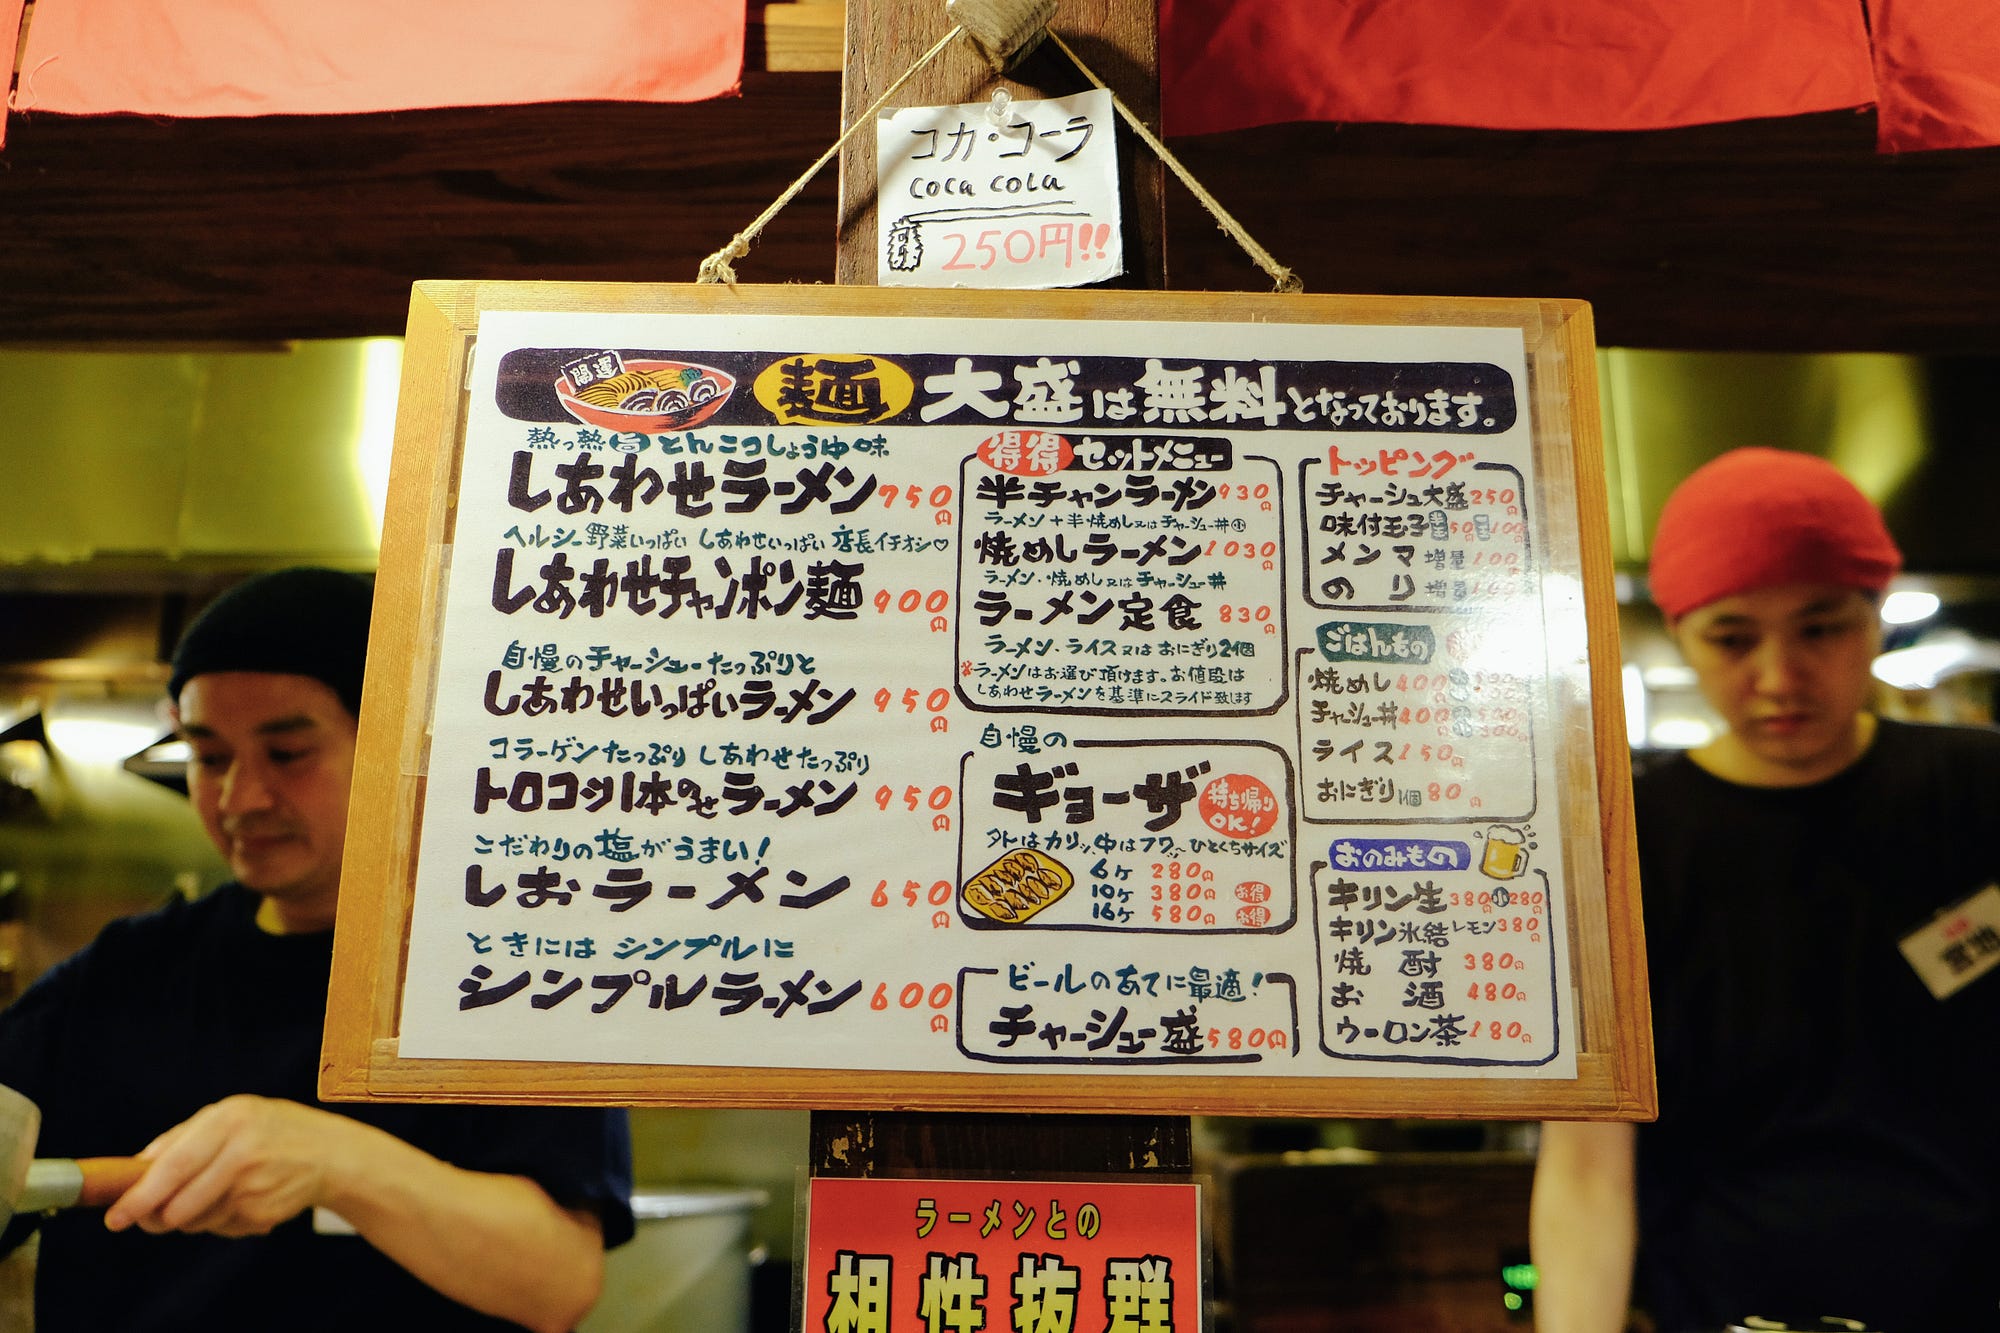 コカ・コーラ
COCA COLA
250円!!
開運
麺 大盛は無料となっております。
熱っ熱 旨 とんこつしょうゆ味
しあわせラーメン 750円
ヘルシー野菜いっぱい しあわせいっぱい 店長イチオシ♡
しあわせチャンポン麺 900円
自慢のチャーシューたっぷりと
しあわせいっぱいラーメン 950円
コラーゲンたっぷり しあわせたっぷり
トロコツ1本のせラーメン 950円
こだわりの塩がうまい!
しおラーメン 650円
ときにはシンプルに
シンプルラーメン 600円
得得 セットメニュー
半チャンラーメン 930円
ラーメン+半焼めし又はチャーシュー丼小
焼めしラーメン 1030円
ラーメン・焼めし又はチャーシュー丼
ラーメン定食 830円
ラーメン・ライス又はおにぎり2個
※ラーメンはお選び頂けます。お値段は
しあわせラーメンを基準にスライド致します
自慢の
ギョーザ
持ち帰りOK!
外はカリッ、中はフワッ〜ひとくちサイズ
6ケ 280円
10ケ 380円 お得
16ケ 580円 お得
ビールのあてに最適!
チャーシュー盛 580円
トッピング
チャーシュー大盛 250円
味付玉子 50円 100円
メンマ 増量 100円
のり 増量
ごはんもの
焼めし 400
チャーシュー丼 400
ライス 150円
おにぎり 1個 80円
おのみもの
キリン生 380円 小 280円
キリン氷結 レモン 380円
焼酎 380円
お酒 480円
ウーロン茶 180円
ラーメンとの
相性抜群